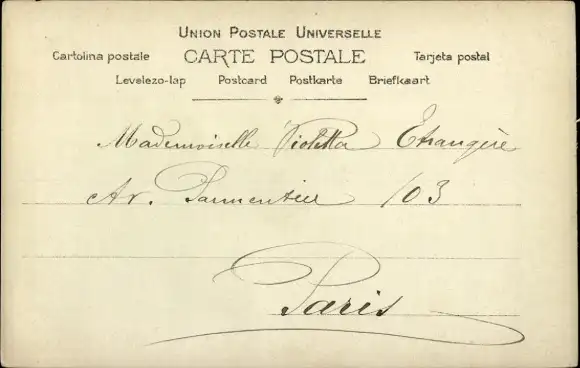 UNION POSTALE UNIVERSELLE
Cartolina postale CARTE POSTALE Tarjeta postal
Levelezo-lap Postcard Postkarte Briefkaart
Mademoiselle Etrangère
Av. Parmentier 103
Paris